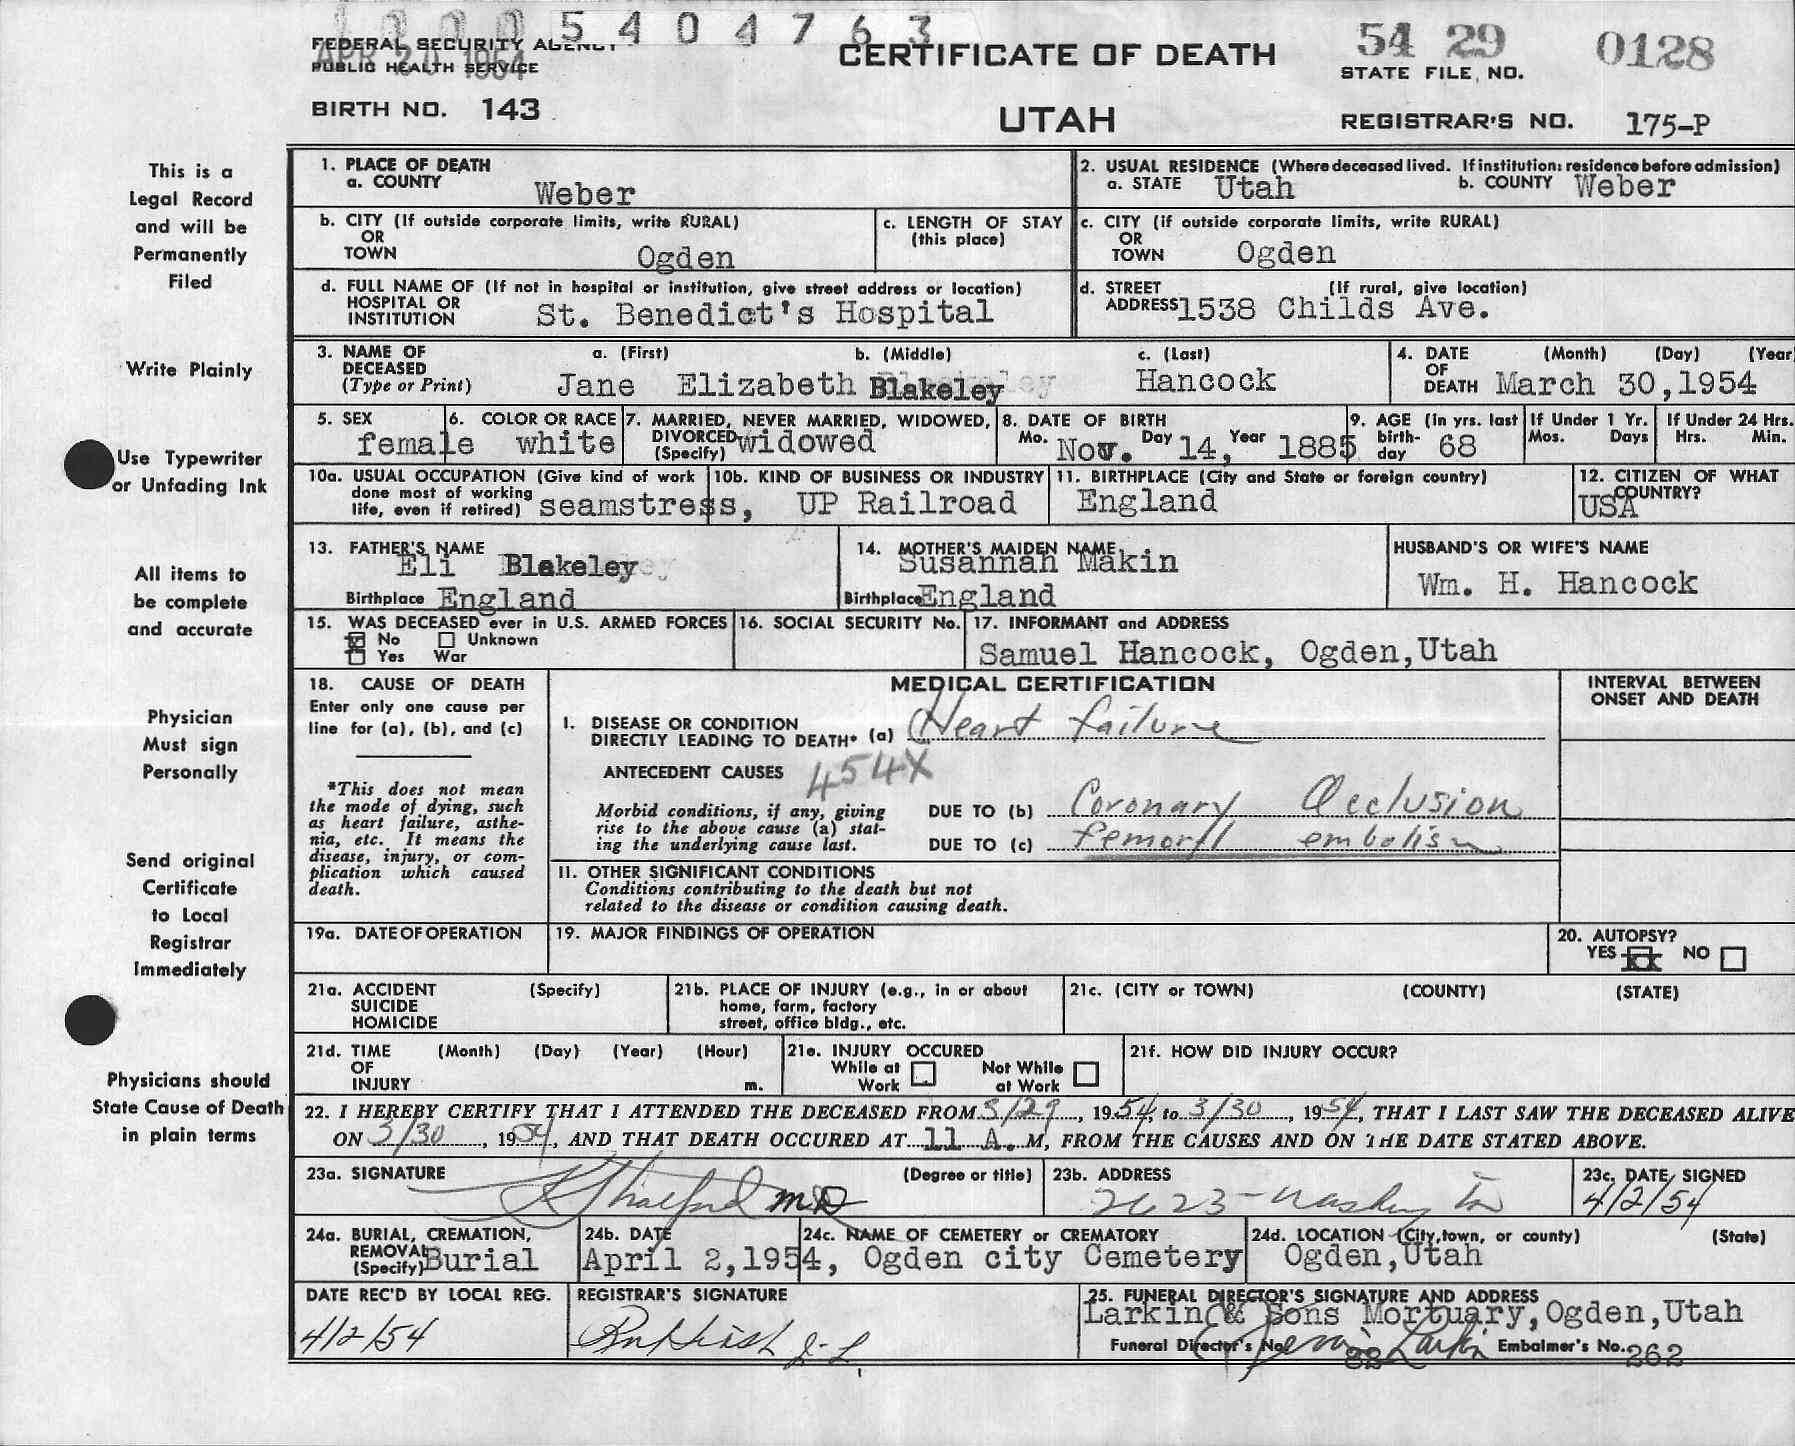 1 0 0 0 5 4 0 4 7 6 3
FEDERAL SECURITY AGENCY
APR 20 1954
PUBLIC HEALTH SERVICE
BIRTH NO. 143
CERTIFICATE OF DEATH
UTAH
54 29 0128
STATE FILE NO.
REGISTRAR'S NO. 175-P
This is a
Legal Record
and will be
Permanently
Filed
Write Plainly
Use Typewriter
or Unfading Ink
All items to
be complete
and accurate
Physician
Must sign
Personally
Send original
Certificate
to Local
Registrar
Immediately
Physicians should
State Cause of Death
in plain terms
1. PLACE OF DEATH
a. COUNTY Weber
2. USUAL RESIDENCE (Where deceased lived. If institution: residence before admission)
a. STATE Utah b. COUNTY Weber
b. CITY (If outside corporate limits, write RURAL)
OR
TOWN Ogden
c. LENGTH OF STAY
(this place)
c. CITY (if outside corporate limits, write RURAL)
OR
TOWN Ogden
d. FULL NAME OF (If not in hospital or institution, give street address or location)
HOSPITAL OR
INSTITUTION St. Benedict's Hospital
d. STREET (If rural, give location)
ADDRESS 1538 Childs Ave.
3. NAME OF DECEASED (Type or Print)
a. (First) b. (Middle) c. (Last)
Jane Elizabeth Blakeley Hancock
4. DATE OF DEATH (Month) (Day) (Year)
March 30,1954
5. SEX female
6. COLOR OR RACE white
7. MARRIED, NEVER MARRIED, WIDOWED,
DIVORCED (Specify) widowed
8. DATE OF BIRTH
Mo. Nov. Day 14, Year 1885
9. AGE (In yrs. last birth-day 68
If Under 1 Yr.
Mos. Days
If Under 24 Hrs.
Hrs. Min.
10a. USUAL OCCUPATION (Give kind of work
done most of working
life, even if retired) seamstress,
10b. KIND OF BUSINESS OR INDUSTRY
UP Railroad
11. BIRTHPLACE (City and State or foreign country)
England
12. CITIZEN OF WHAT
COUNTRY?
USA
13. FATHER'S NAME
Eli Blakeley
Birthplace England
14. MOTHER'S MAIDEN NAME
Susannah Makin
Birthplace England
HUSBAND'S OR WIFE'S NAME
Wm. H. Hancock
15. WAS DECEASED ever in U.S. ARMED FORCES
No Unknown
Yes War
16. SOCIAL SECURITY No.
17. INFORMANT and ADDRESS
Samuel Hancock, Ogden,Utah
18. CAUSE OF DEATH
Enter only one cause per
line for (a), (b), and (c)
*This does not mean
the mode of dying, such
as heart failure, asthe-
nia, etc. It means the
disease, injury, or com-
plication which caused
death.
MEDICAL CERTIFICATION
INTERVAL BETWEEN
ONSET AND DEATH
I. DISEASE OR CONDITION
DIRECTLY LEADING TO DEATH* (a) Heart failure
ANTECEDENT CAUSES 454X
Morbid conditions, if any, giving
rise to the above cause (a) stat-
ing the underlying cause last.
DUE TO (b) Coronary Occlusion
DUE TO (c) femorl embolism
II. OTHER SIGNIFICANT CONDITIONS
Conditions contributing to the death but not
related to the disease or condition causing death.
19a. DATE OF OPERATION
19. MAJOR FINDINGS OF OPERATION
20. AUTOPSY?
YES NO
21a. ACCIDENT (Specify)
SUICIDE
HOMICIDE
21b. PLACE OF INJURY (e.g., in or about
home, farm, factory
street, office bldg., etc.
21c. (CITY or TOWN) (COUNTY) (STATE)
21d. TIME (Month) (Day) (Year) (Hour)
OF
INJURY m.
21e. INJURY OCCURED
While at Not While
Work at Work
21f. HOW DID INJURY OCCUR?
22. I HEREBY CERTIFY THAT I ATTENDED THE DECEASED FROM 3/29, 1954, to 3/30, 1954, THAT I LAST SAW THE DECEASED ALIVE
ON 3/30, 1954, AND THAT DEATH OCCURED AT 11 A. M, FROM THE CAUSES AND ON THE DATE STATED ABOVE.
23a. SIGNATURE (Degree or title)
M.D.
23b. ADDRESS
2623 Washington
23c. DATE SIGNED
4/2/54
24a. BURIAL, CREMATION,
REMOVAL (Specify) Burial
24b. DATE
April 2,1954,
24c. NAME OF CEMETERY or CREMATORY
Ogden city Cemetery
24d. LOCATION (City, town, or county) (State)
Ogden,Utah
DATE REC'D BY LOCAL REG.
4/2/54
REGISTRAR'S SIGNATURE
25. FUNERAL DIRECTOR'S SIGNATURE AND ADDRESS
Larkin & Sons Mortuary,Ogden,Utah
Funeral Director's No. Larkin Embalmer's No. 262